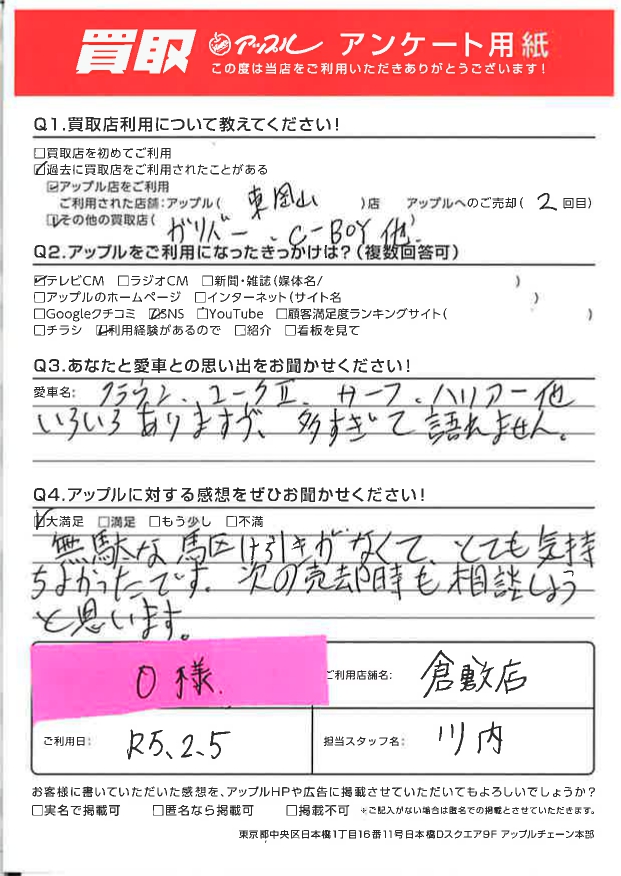 買取 アップル アンケート用紙
この度は当店をご利用いただきありがとうございます!
Q1.買取店利用について教えてください!
□買取店を初めてご利用
☑過去に買取店をご利用されたことがある
☑アップル店をご利用
ご利用された店舗:アップル( 東岡山 )店 アップルへのご売却( 2 回目)
☑その他の買取店( ガリバー、C-BOY 他 )
Q2.アップルをご利用になったきっかけは?(複数回答可)
☑テレビCM □ラジオCM □新聞・雑誌(媒体名/ )
□アップルのホームページ □インターネット(サイト名 )
□Googleクチコミ ☑SNS □YouTube □顧客満足度ランキングサイト( )
□チラシ ☑利用経験があるので □紹介 □看板を見て
Q3.あなたと愛車との思い出をお聞かせください!
愛車名: クラウン、マークⅡ、サーフ、ハリアー他
いろいろありますが、多すぎて語れません。
Q4.アップルに対する感想をぜひお聞かせください!
☑大満足 □満足 □もう少し □不満
無駄な馬区け引きがなくて、とても気持
ちよかったです。次の売却時も相談しよう
と思います。
O様.
ご利用店舗名: 倉敷店
ご利用日: R5、2、5
担当スタッフ名: 川内
お客様に書いていただいた感想を、アップルHPや広告に掲載させていただいてもよろしいでしょうか?
□実名で掲載可 □匿名なら掲載可 □掲載不可 ※ご記入がない場合は匿名での掲載とさせていただきます。
東京都中央区日本橋1丁目16番11号日本橋Dスクエア9F アップルチェーン本部